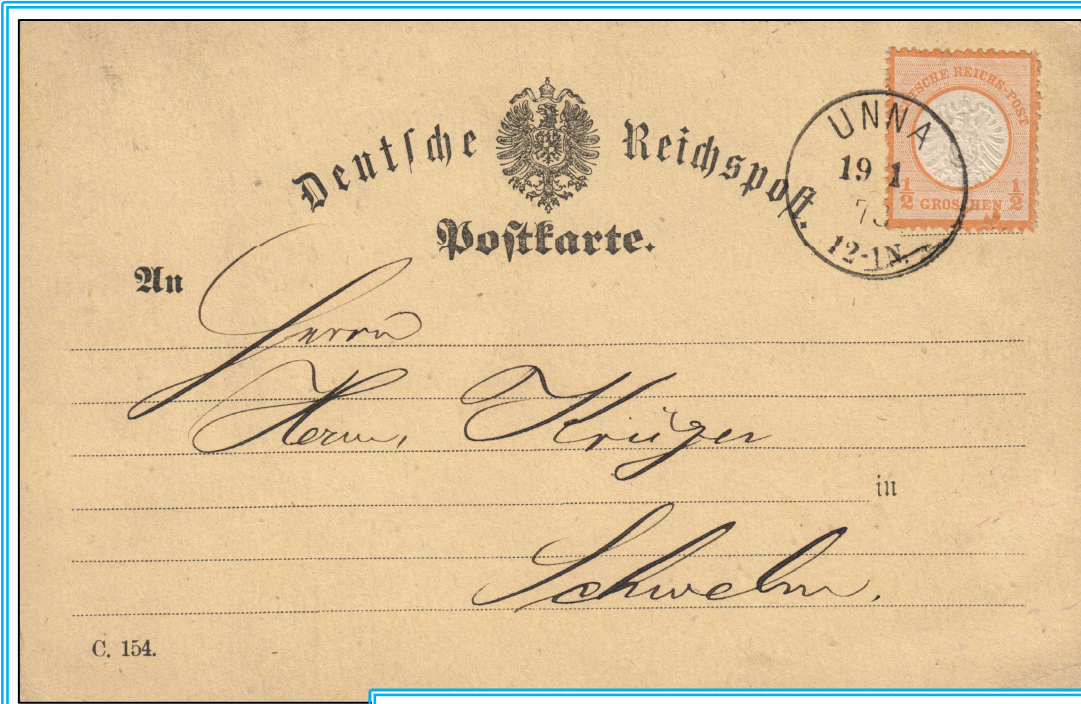 Deutſche Reichspoſt.
Poſtkarte.
DEUTSCHE REICHS-POST
½ GROSCHEN ½
UNNA
19 1
12-1N.
An
Herrn
Herm. Krüger
in
Schwelm.
C. 154.